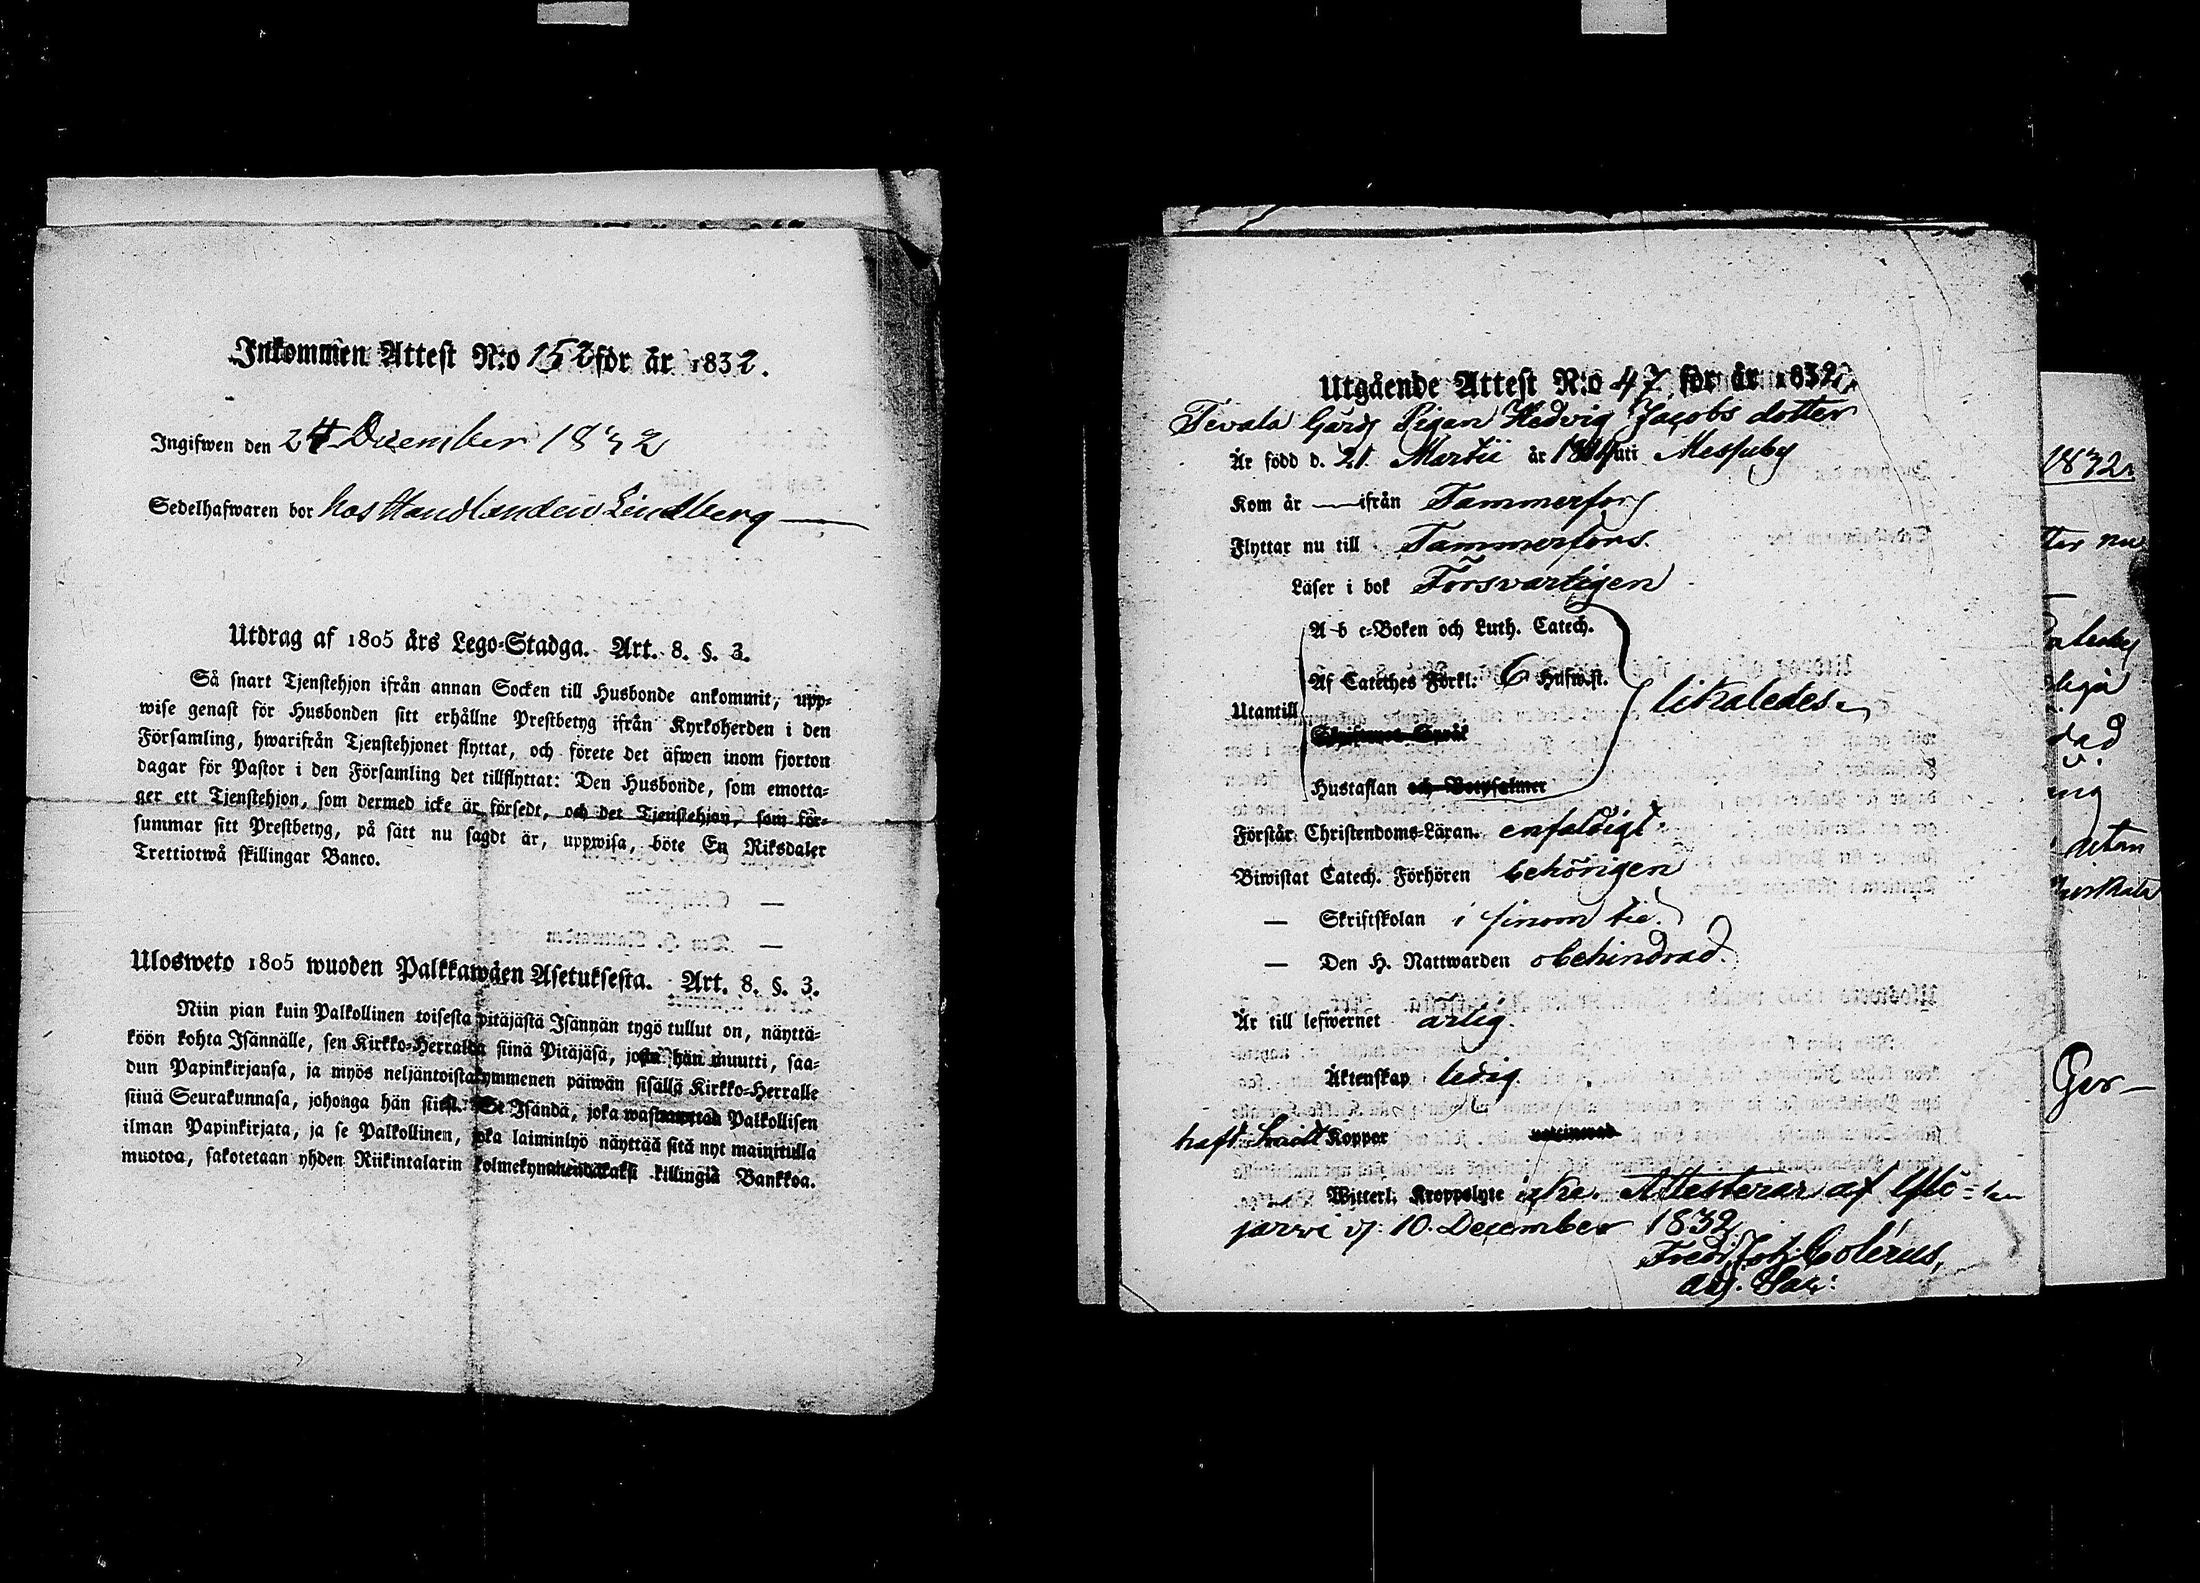 Inkommen Attest N:o 152 för år 1832.
Ingifwen den 24 December 1832
Sedelhafwaren bor hos Handlanden Lindberg —
Utdrag af 1805 års Lego-Stadga. Art. 8. §. 3.
Så snart Tjenstehjon ifrån annan Socken till Husbonde ankommit, upp-
wise genast för Husbonden sitt erhållne Prestbetyg ifrån Kyrkoherden i den
Församling, hwarifrån Tjenstehjonet flyttat, och förete det äfwen inom fjorton
dagar för Pastor i den Församling det tillflyttat: Den Husbonde, som emotta-
ger ett Tjenstehjon, som dermed icke är försedt, och det Tjenstehjon, som för-
summar sitt Prestbetyg, på sätt nu sagdt är, uppwisa, böte En Riksdaler
Trettiotwå skillingar Banco.
Ulosweto 1805 wuoden Palkkawäen Asetuksesta. Art. 8. §. 3.
Niin pian kuin Palkollinen toisesta pitäjästä Isännän tygö tullut on, näyttä-
köön kohta Isännälle, sen Kirkko-Herralda siinä Pitäjäsä, josta hän muutti, saa-
dun Papinkirjansa, ja myös neljäntoistakymmenen päiwän sisällä Kirkko-Herralle
siinä Seurakunnasa, johonga hän siirsi. Se Isändä, joka wastaanottaa Palkollisen
ilman Papinkirjata, ja se Palkollinen, joka laiminlyö näyttää sitä nyt mainitulla
muotoa, sakotetaan yhden Riikintalarin kolmekymmendäkaksi killingiä Bankkoa.
Utgående Attest N:o 47 för år 1832.
Tevala Gårds Pigan Hedvig Jacobs dotter
Är född d. 21 Martii år uti Messuby
Kom år — ifrån Tammerfors
Flyttar nu till Tammerfors.
Läser i bok Försvarligen
A-b c-Boken och Luth. Catech.
Af Cateches Förkl: 6 Hufwst.
Utantill likaledes
Skriftenes Språk
Hustaflan och Botpsalmer
Förstår Christendoms-Läran. enfaldigt
Biwistat Catech. Förhören behörigen
— Skriftskolan i sinom tid.
— Den H. Nattwarden obehindrad.
Är till lefwernet ärlig.
Äktenskap ledig
haft Koppor vaccinerad
Witterl. Kroppslyte icke. Attesterar af Ylö-
järvi d. 10. December 1832
Fred. Joh. Colerus,
adj. Sac:
1832
ter nu
dad
v.
ing
Ger—